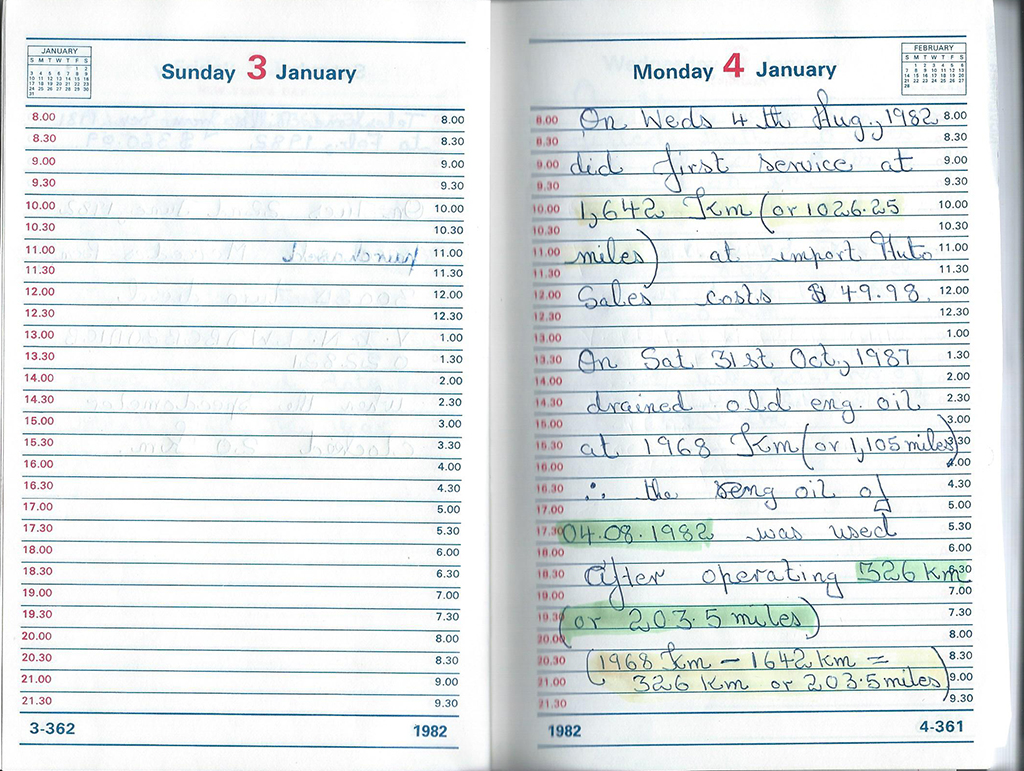 JANUARY
S M T W T F S
Sunday 3 January
8.00 8.00
8.30 8.30
9.00 9.00
9.30 9.30
10.00 10.00
10.30 10.30
11.00 11.00
11.30 11.30
12.00 12.00
12.30 12.30
13.00 1.00
13.30 1.30
14.00 2.00
14.30 2.30
15.00 3.00
15.30 3.30
16.00 4.00
16.30 4.30
17.00 5.00
17.30 5.30
18.00 6.00
18.30 6.30
19.00 7.00
19.30 7.30
20.00 8.00
20.30 8.30
21.00 9.00
21.30 9.30
3-362 1982
Monday 4 January
FEBRUARY
S M T W T F S
8.00 On Weds 4th Aug., 1982 8.00
8.30 8.30
9.00 did first service at 9.00
9.30 9.30
10.00 1,642 Km (or 1026.25 10.00
10.30 10.30
11.00 miles) at import Auto 11.00
11.30 11.30
12.00 Sales costs $49.98. 12.00
12.30 12.30
13.00 1.00
13.30 On Sat 31st Oct, 1987 1.30
14.00 2.00
14.30 drained old eng. oil 2.30
15.00 3.00
15.30 at 1968 Km (or 1,105 miles) 3.30
16.00 4.00
16.30 ∴ the eng oil of 4.30
17.00 5.00
17.30 04.08.1982 was used 5.30
18.00 6.00
18.30 after operating 326 km 6.30
19.00 7.00
19.30 (or 203.5 miles) 7.30
20.00 8.00
20.30 (1968 Km - 1642 km = 8.30
21.00 326 Km or 203.5 miles) 9.00
21.30 9.30
1982 4-361